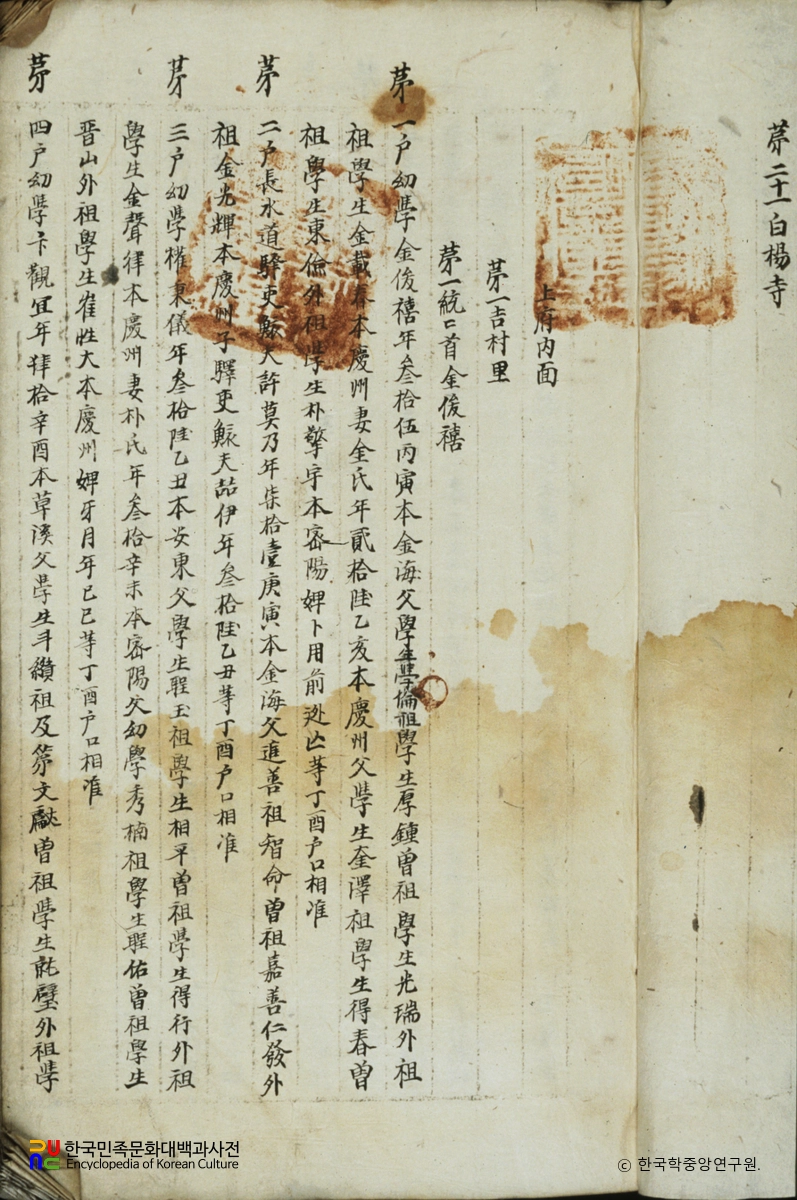 第二十一白楊寺
上府內面
第一吉村里
第一統统首金俊禧
第一户幼學金俊禧年叁拾伍丙寅本金海父學生學倫祖學生厚鍾曾祖學生光瑞外祖
祖學生金載春本慶州妻金氏年貳拾陸乙亥本慶州父學生奎澤祖學生得春曾
祖學生東倫外祖學生朴擎宇本密陽婢卜用前逃亡等丁酉户口相准
第二户長水道驛吏鰥夫許莫乃年柒拾壹庚寅本金海父進善祖智命曾祖嘉善仁發外
祖金光輝本慶州子驛吏鰥夫喆伊年叁拾陸乙丑等丁酉户口相准
第三户幼學權秉儀年叁拾陸乙丑本安東父學生聖玉祖學生相平曾祖學生得行外祖
學生金聲律本慶州妻朴氏年叁拾辛未本密陽父幼學秀楠祖學生聖佑曾祖學生
晋山外祖學生崔性大本慶州婢牙月年己巳等丁酉户口相准
第四户幼學卞觀宜年肆拾辛酉本草溪父學生斗纘祖及第文獻曾祖學生 璧外祖學
한국민족문화대백과사전
Encyclopedia of Korean Culture
© 한국학중앙연구원.